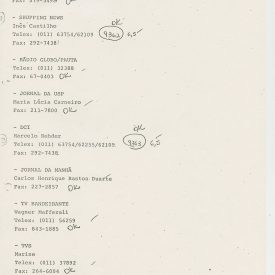 Fax: 275-3498 OK
- SHOPPING NEWS OK
Inês Castilho
Telex: (011) 63754/62109 9363 6,5
Fax: 292-7438
- RÁDIO GLOBO/PAUTA
Telex: (011) 32388
Fax: 67-0403 OK
- JORNAL DA USP
Maria Lúcia Carneiro
Fax: 211-7800 OK
- DCI OK
Marcelo Rehder
Telex: (011) 63754/62255/62109 9363 6,5
Fax: 292-7438
- JORNAL DA MANHÃ
Carlos Henrique Bastos Duarte
Fax: 227-2857 OK
- TV BANDEIRANTE
Wagner Mafferali
Telex: (011) 56259
Fax: 843-1885 OK
- TVS
Marise
Telex: (011) 37892
Fax: 264-6004 OK